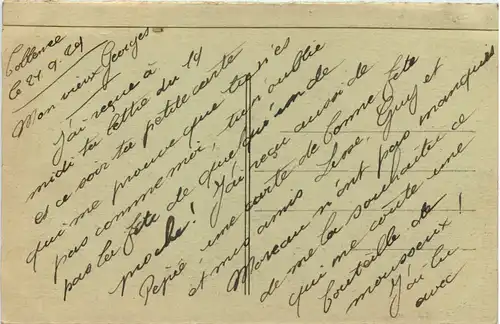 Tollence
le 24.9.29
Mon vieux Georges
J'ai reçue à
midi ta lettre du 14
et ce soir ta petite carte
qui me prouve que tu n'es
pas comme moi, tu n'oublie
pas la fête de quelqu'un de
proche! J'ai reçu aussi de
Pépée une carte de bonne fête
et mes amis Guy et
Moreau n'ont pas manqués
de me la souhaiter ce
qui me coute une
bouteille de
mousseux!
J'ai lu
avec